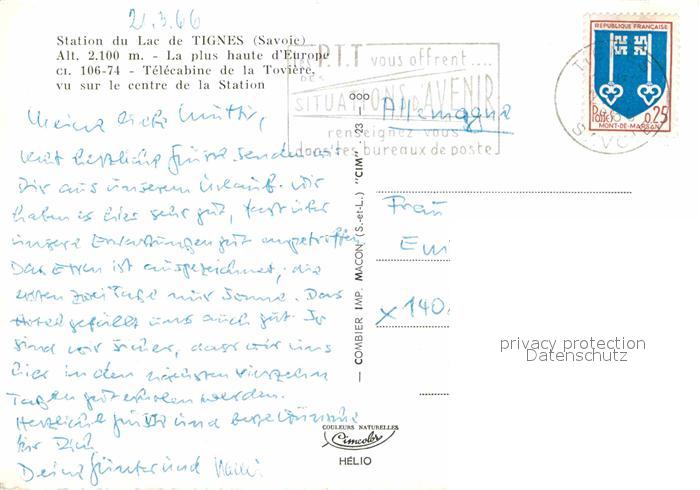 21.3.66
Station du Lac de TIGNES (Savoie)
Alt. 2.100 m. - La plus haute d'Europe
CI. 106-74 - Télécabine de la Tovière,
vu sur le centre de la Station
P.T.T vous offrent....
DES
SITUATIONS D'AVENIR
renseignez vous
dans les bureaux de poste
REPUBLIQUE FRANÇAISE
Postes 0,25
MONT-DE-MARSAN
Allemagne
Meine liebe Mutti,
mit herzliche Grüsse senden wir
Dir aus unserem Urlaub. Wir
haben es hier sehr gut, fast über
unsere Erwartungen gut angetroffen
Das Essen ist ausgezeichnet, die
ersten zwei Tage nur Sonne. Das
Hotel gefällt uns auch gut. So
sind wir sicher, dass wir uns
hier in den nächsten vierzehn
Tagen gut erholen werden.
Herzliche Grüsse und beste Wünsche
für Dich
Deine Günter und
Frau
Em
x 140.
— COMBIER IMP. MACON (S.-et-L.) "CIM" - 23 —
privacy protection
Datenschutz
COULEURS NATURELLES
Cimcolor
HÉLIO